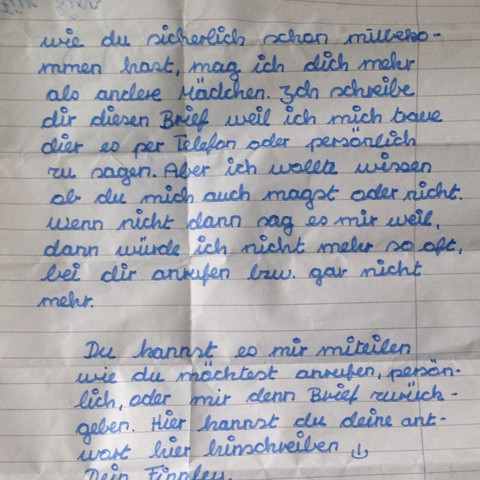 wie du sicherlich schon mitbeko-
mmen hast, mag ich dich mehr
als andere Mädchen. Ich schreibe
dir diesen Brief weil ich mich traue
dier es per Telefon oder persönlich
zu sagen. Aber ich wollte wissen
ob du mich auch magst oder nicht.
wenn nicht dann sag es mir weil,
dann würde ich nicht mehr so oft,
bei dir anrufen bzw. gar nicht
mehr.
Du kannst es mir miteilen
wie du möchtest anrufen, persön-
lich, oder mir denn Brief zurück-
geben. Hier kannst du deine ant-
wort hier hinschreiben
Dein Finnley.